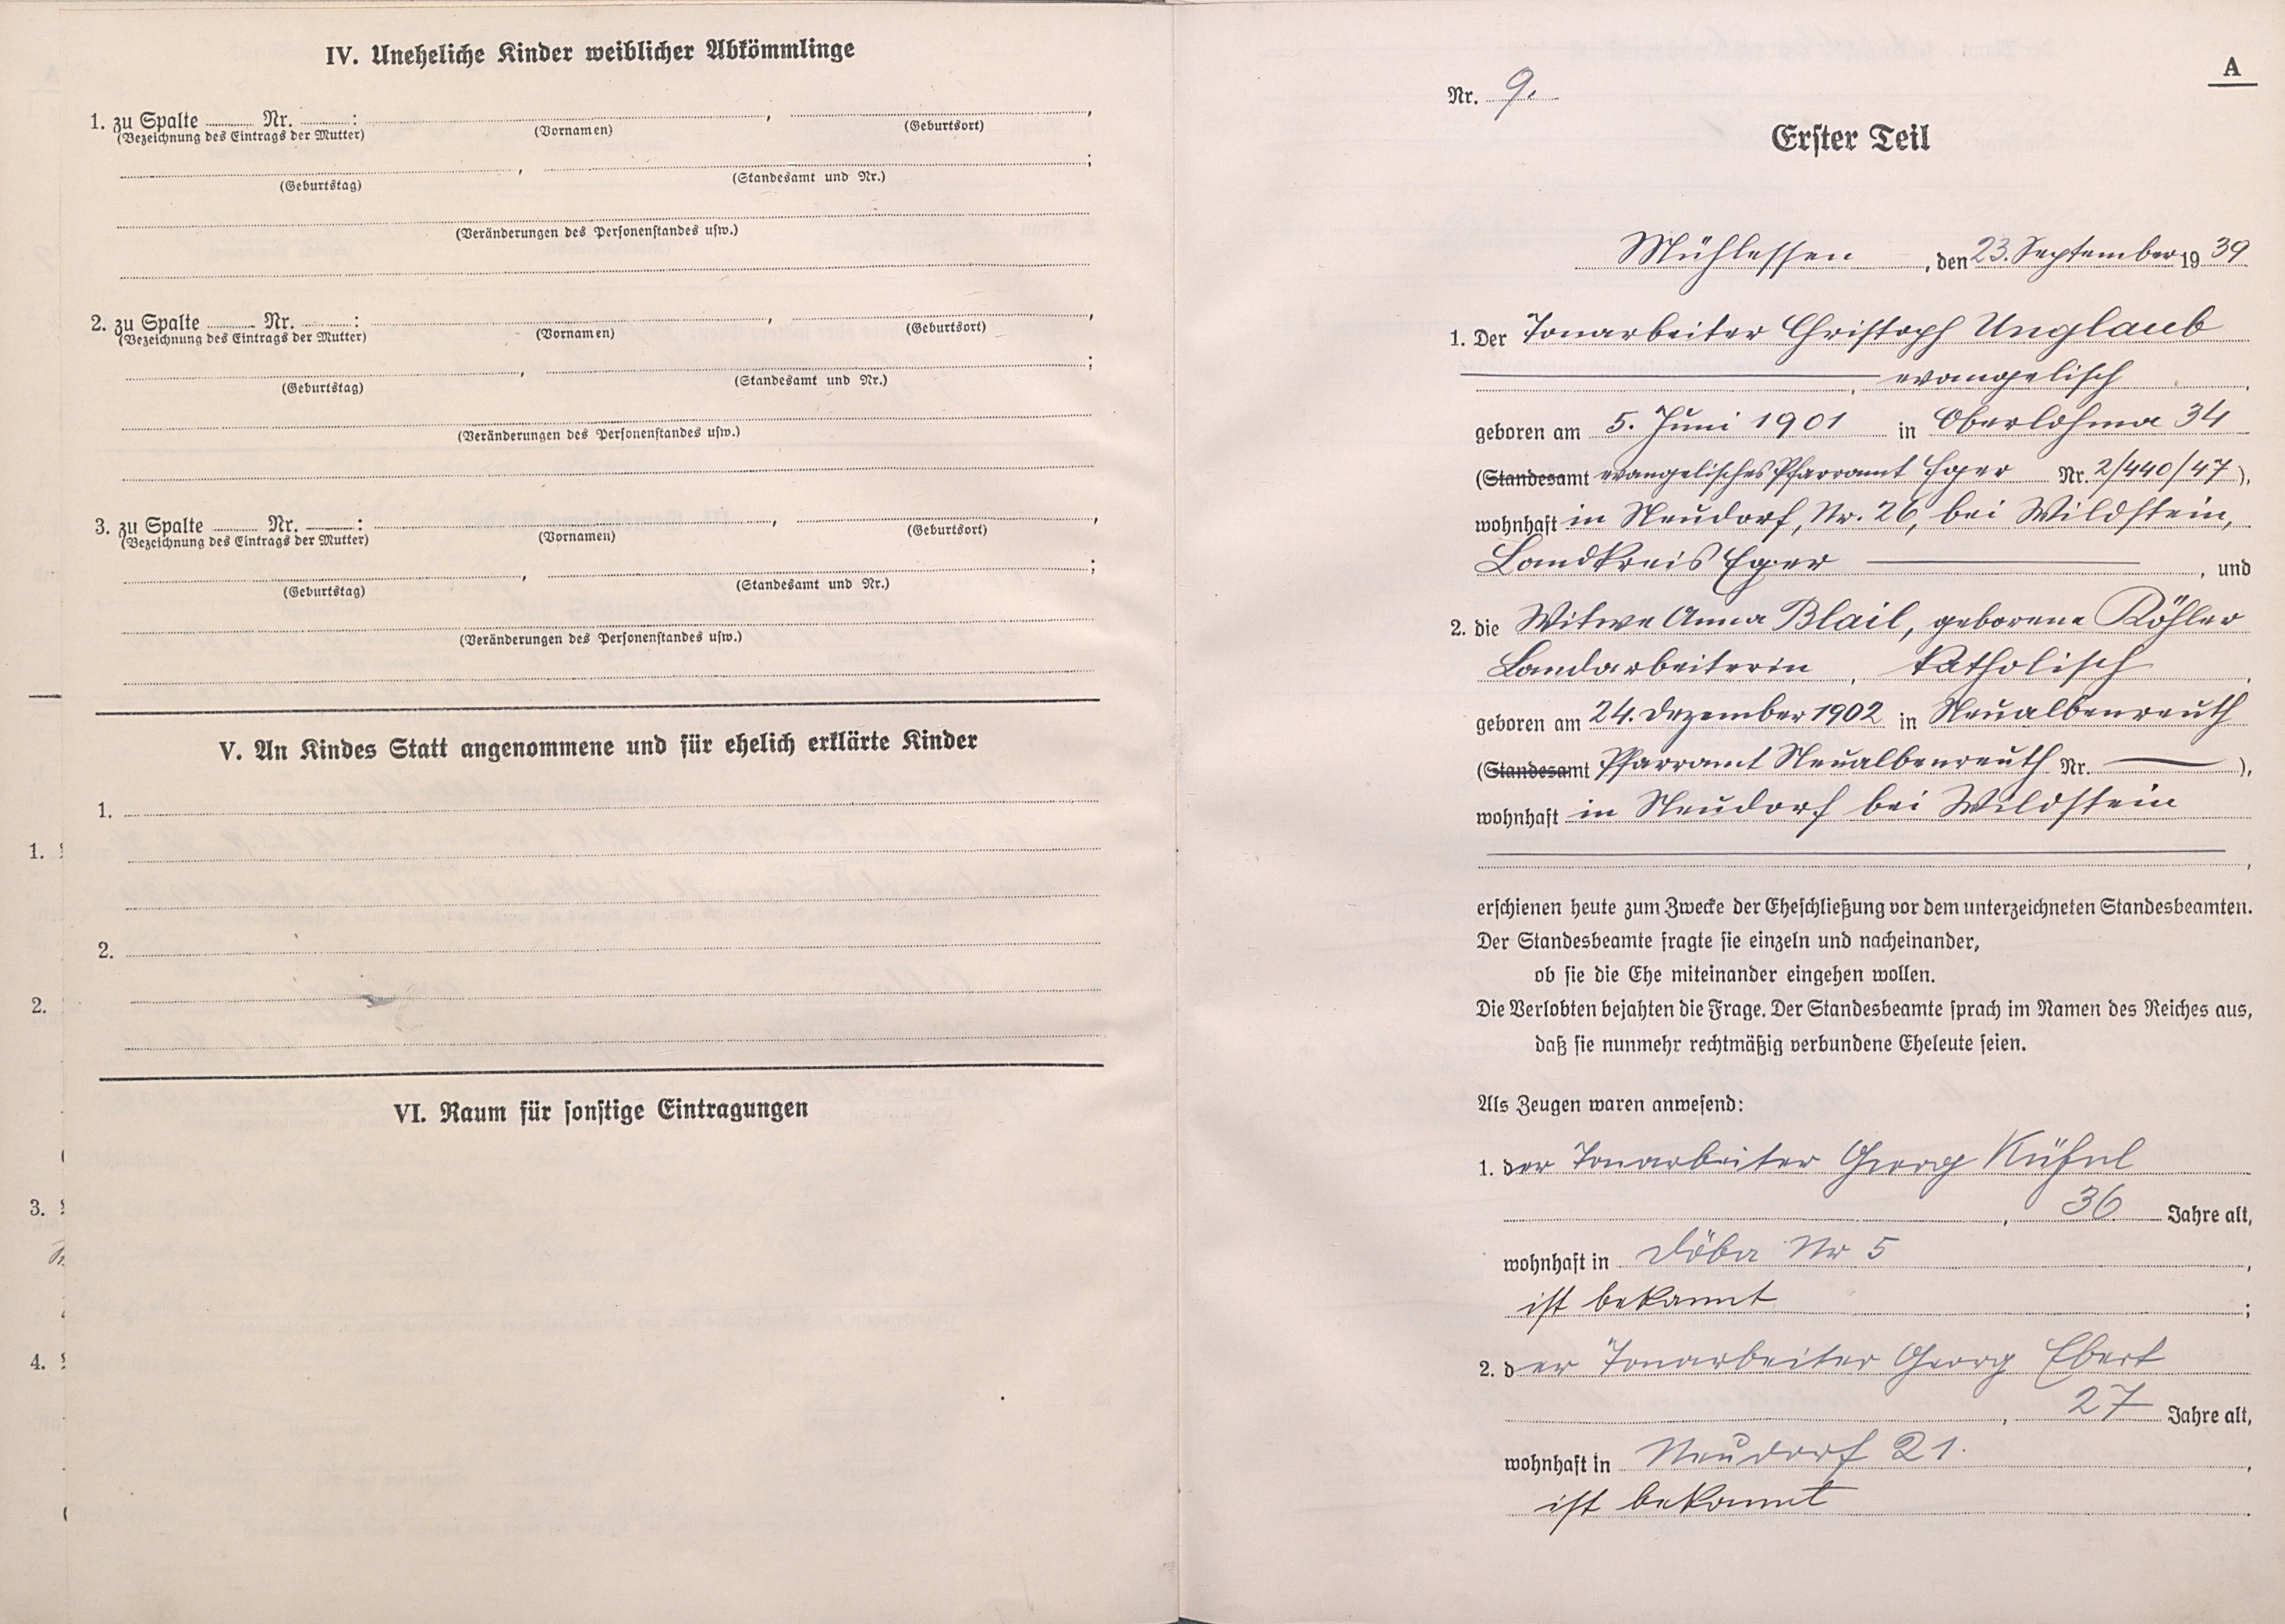 IV. Uneheliche Kinder weiblicher Abkömmlinge
1. zu Spalte Nr. : , ,
(Bezeichnung des Eintrags der Mutter) (Vornamen) (Geburtsort)
, ;
(Geburtstag) (Standesamt und Nr.)
(Veränderungen des Personenstandes usw.)
2. zu Spalte Nr. : , ,
(Bezeichnung des Eintrags der Mutter) (Vornamen) (Geburtsort)
, ;
(Geburtstag) (Standesamt und Nr.)
(Veränderungen des Personenstandes usw.)
3. zu Spalte Nr. : , ,
(Bezeichnung des Eintrags der Mutter) (Vornamen) (Geburtsort)
, ;
(Geburtstag) (Standesamt und Nr.)
(Veränderungen des Personenstandes usw.)
V. An Kindes Statt angenommene und für ehelich erklärte Kinder
1.
2.
VI. Raum für sonstige Eintragungen
1.
2.
3.
4.
A
Nr. 9.
Erster Teil
Mühlessen, den 23. September 1939
1. Der Tonarbeiter Christoph Unglaub
, evangelisch,
geboren am 5. Juni 1901 in Oberlohma 34
(Standesamt evangelisches Pfarramt Eger Nr. 2/440/47),
wohnhaft in Neudorf, Nr. 26, bei Wildstein,
Landkreis Eger, und
2. die Witwe Anna Blail, geborene Röhler
Landarbeiterin, katholisch,
geboren am 24. Dezember 1902 in Neualbenreuth
(Standesamt Pfarramt Neualbenreuth Nr. —),
wohnhaft in Neudorf bei Wildstein
,
erschienen heute zum Zwecke der Eheschließung vor dem unterzeichneten Standesbeamten.
Der Standesbeamte fragte sie einzeln und nacheinander,
ob sie die Ehe miteinander eingehen wollen.
Die Verlobten bejahten die Frage. Der Standesbeamte sprach im Namen des Reiches aus,
daß sie nunmehr rechtmäßig verbundene Eheleute seien.
Als Zeugen waren anwesend:
1. der Tonarbeiter Georg Küfnl
, 36 Jahre alt,
wohnhaft in Döba Nr 5,
ist bekannt;
2. der Tonarbeiter Georg Ebert
, 27 Jahre alt,
wohnhaft in Neudorf 21.,
ist bekannt.